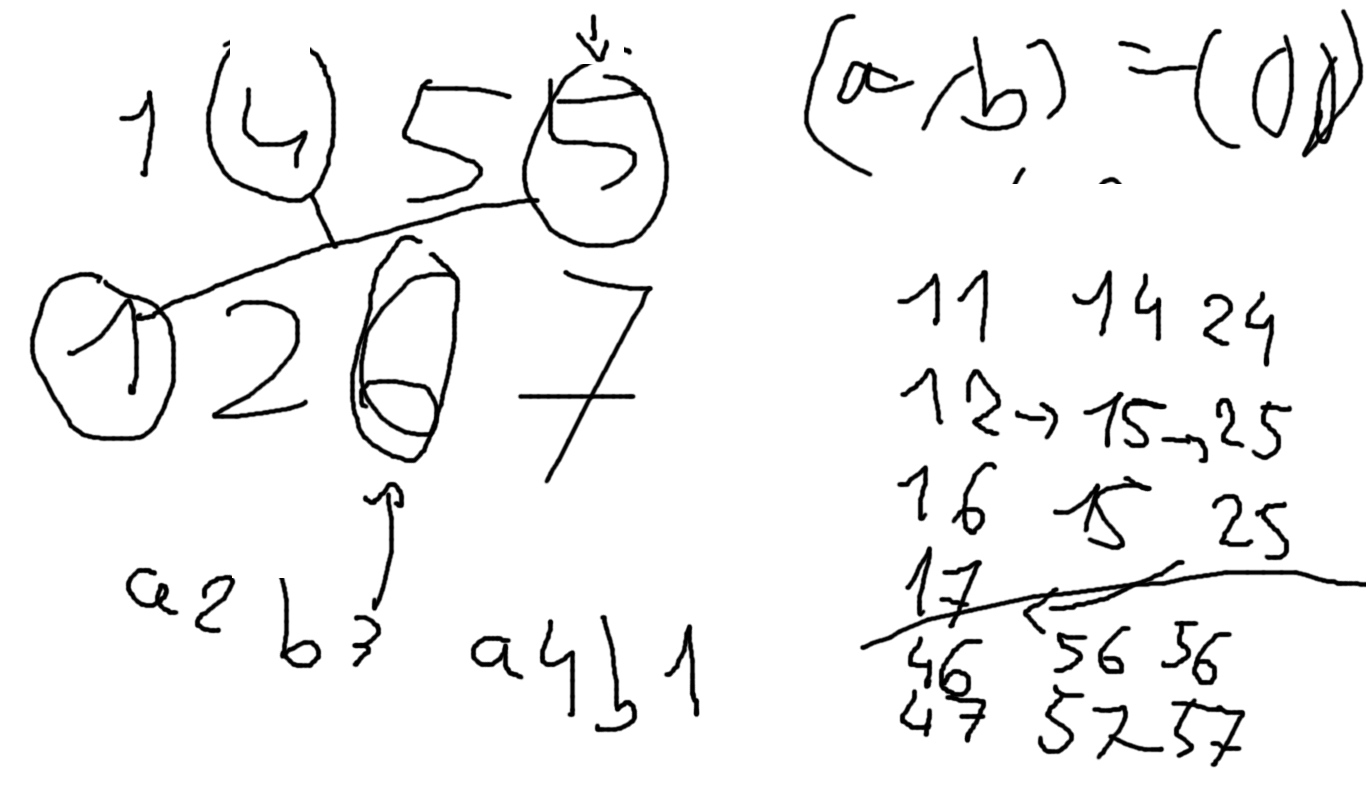 1 4 5 5
1 2 6 7
a2 b3
a4b1
(a, b) =
11 14 24
12 → 15 → 25
16 15 25
17
46 56 56
47 57 57